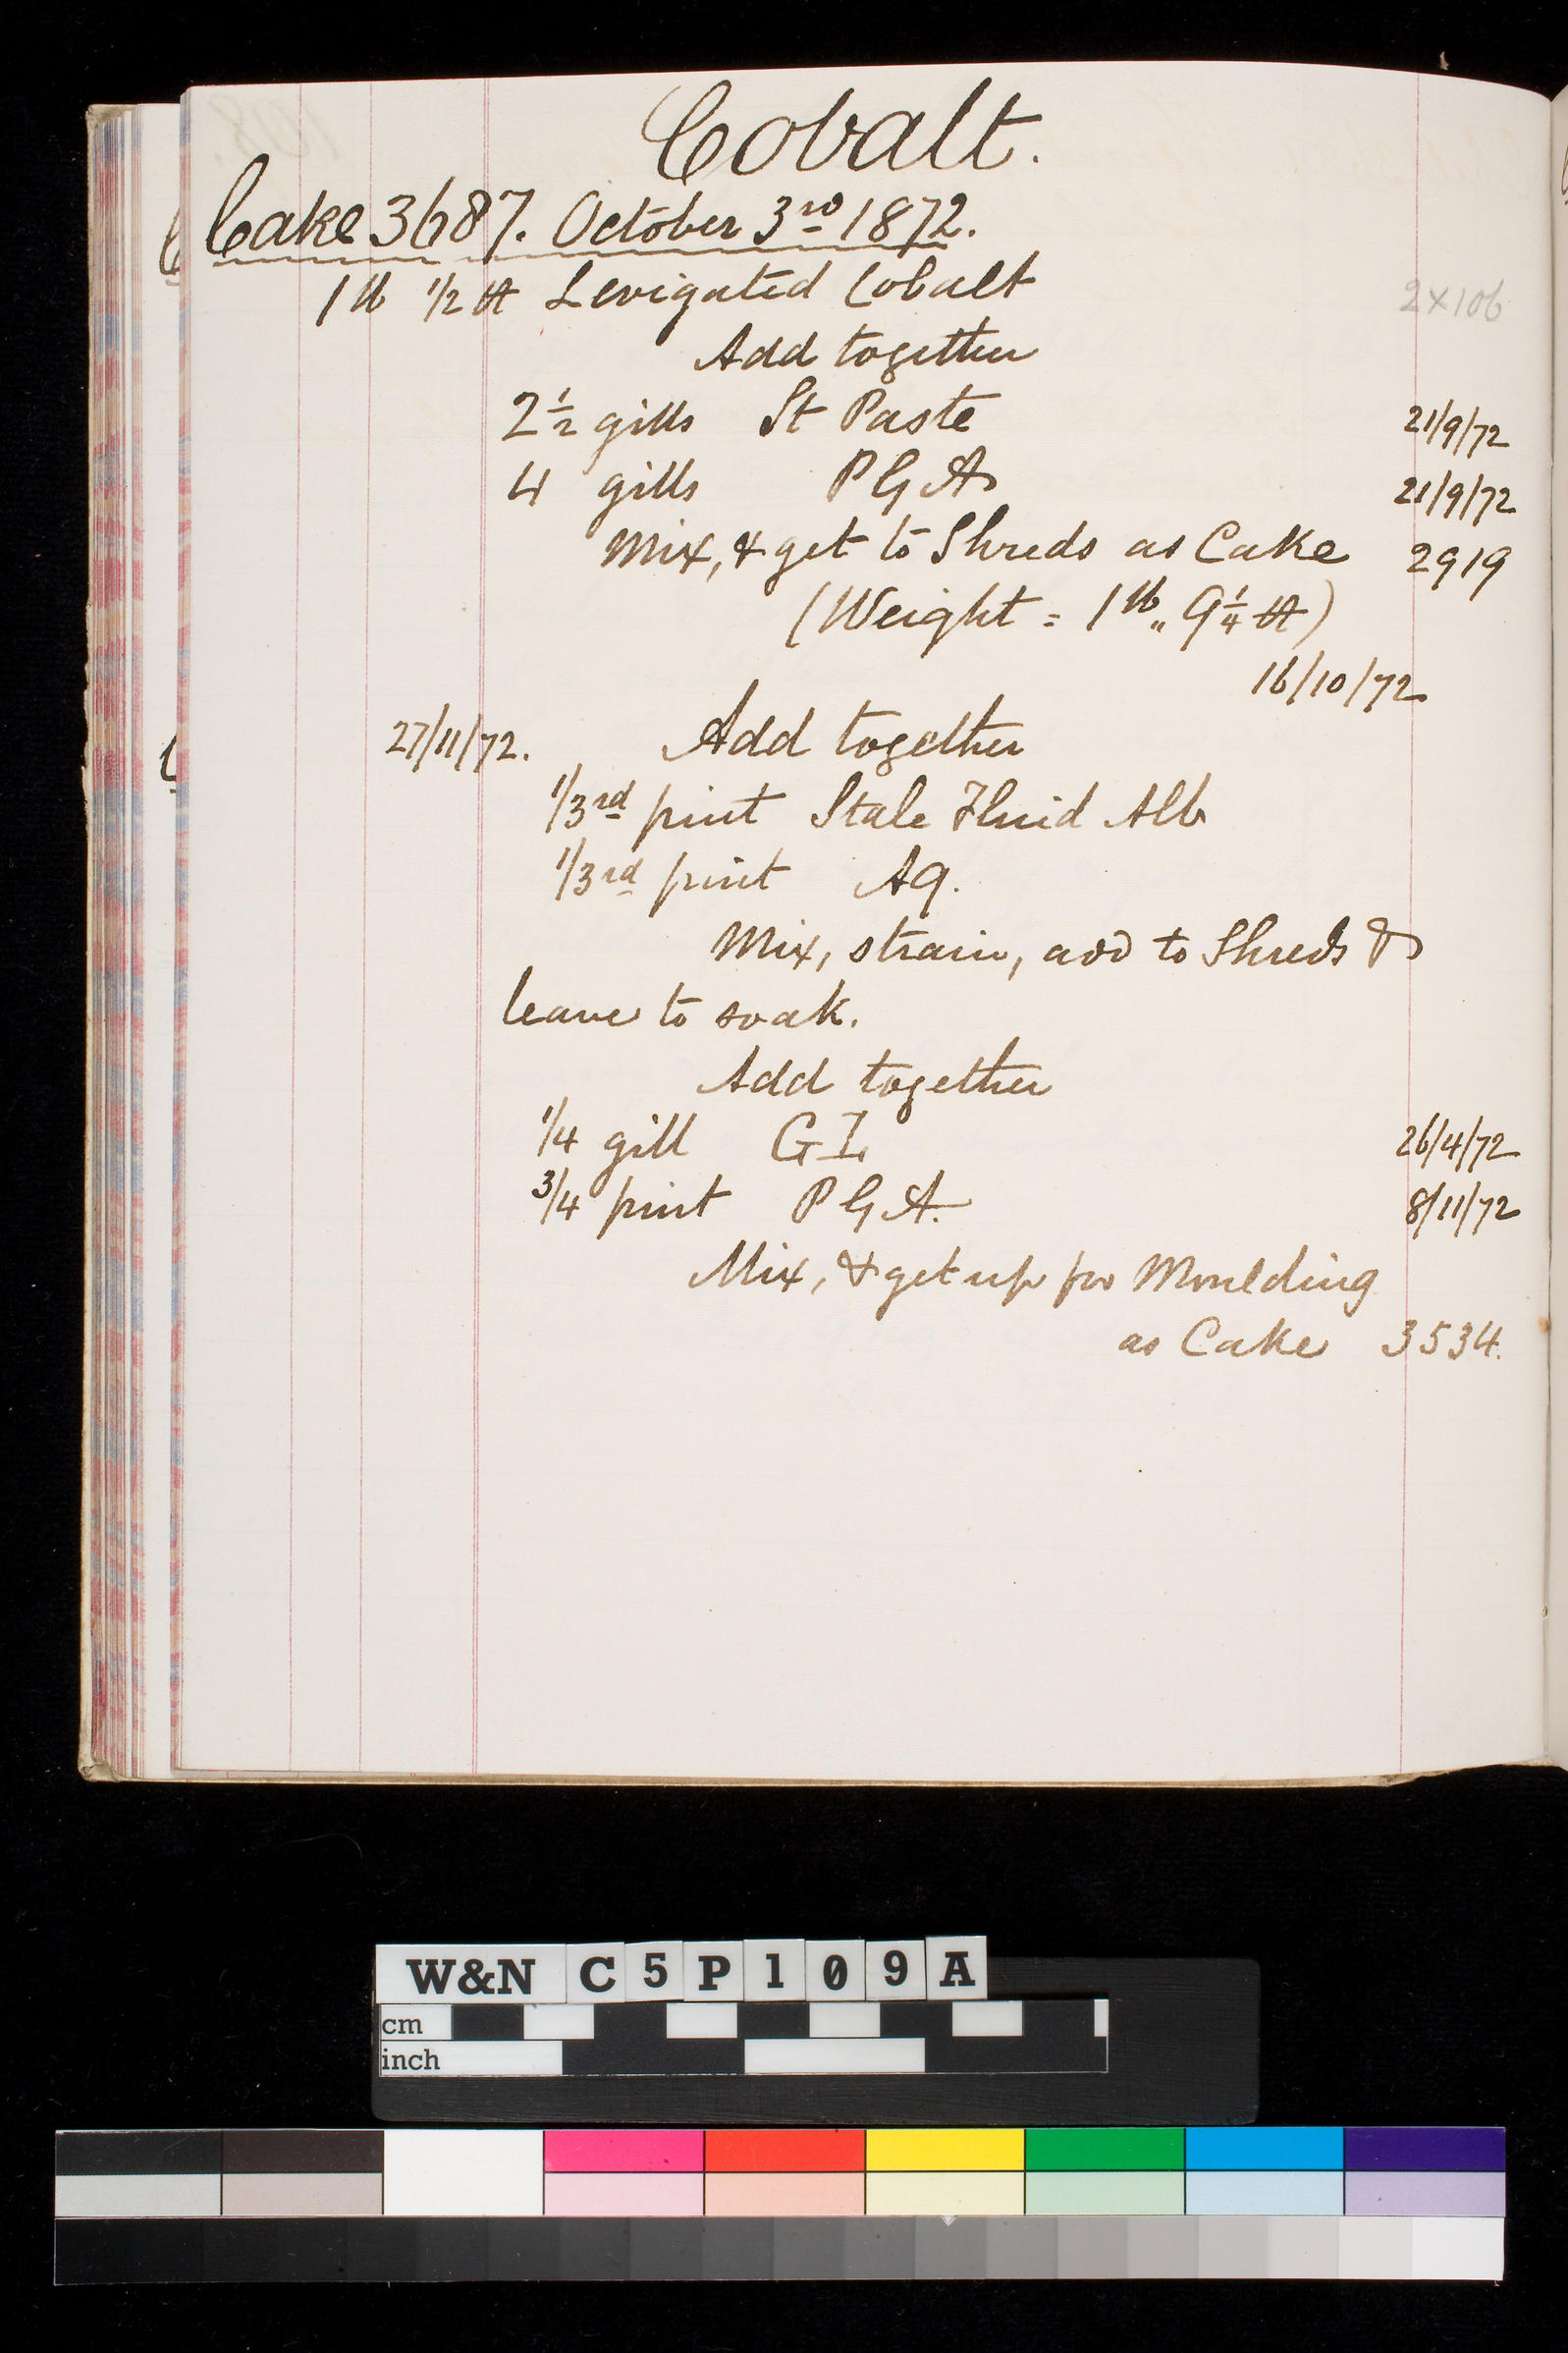 Cobalt.
Cake 3687. October 3rd 1872.
1 lb 1/2 ℔ Levigated Cobalt
2x106
Add together
2 1/2 gills St Paste 21/9/72
4 gills P G A 21/9/72
Mix, & get to Shreds as Cake 2919
(Weight = 1 lb „ 9 1/4 ℔)
16/10/72
27/11/72. Add together
1/3rd pint Stale Fluid Alb
1/3rd pint Aq.
Mix, strain, add to Shreds &
leave to soak.
Add together
1/4 gill G I 26/4/72
3/4 pint P G A. 8/11/72
Mix, & get up for Moulding
as Cake 3534.
W&N C5P109A
cm
inch